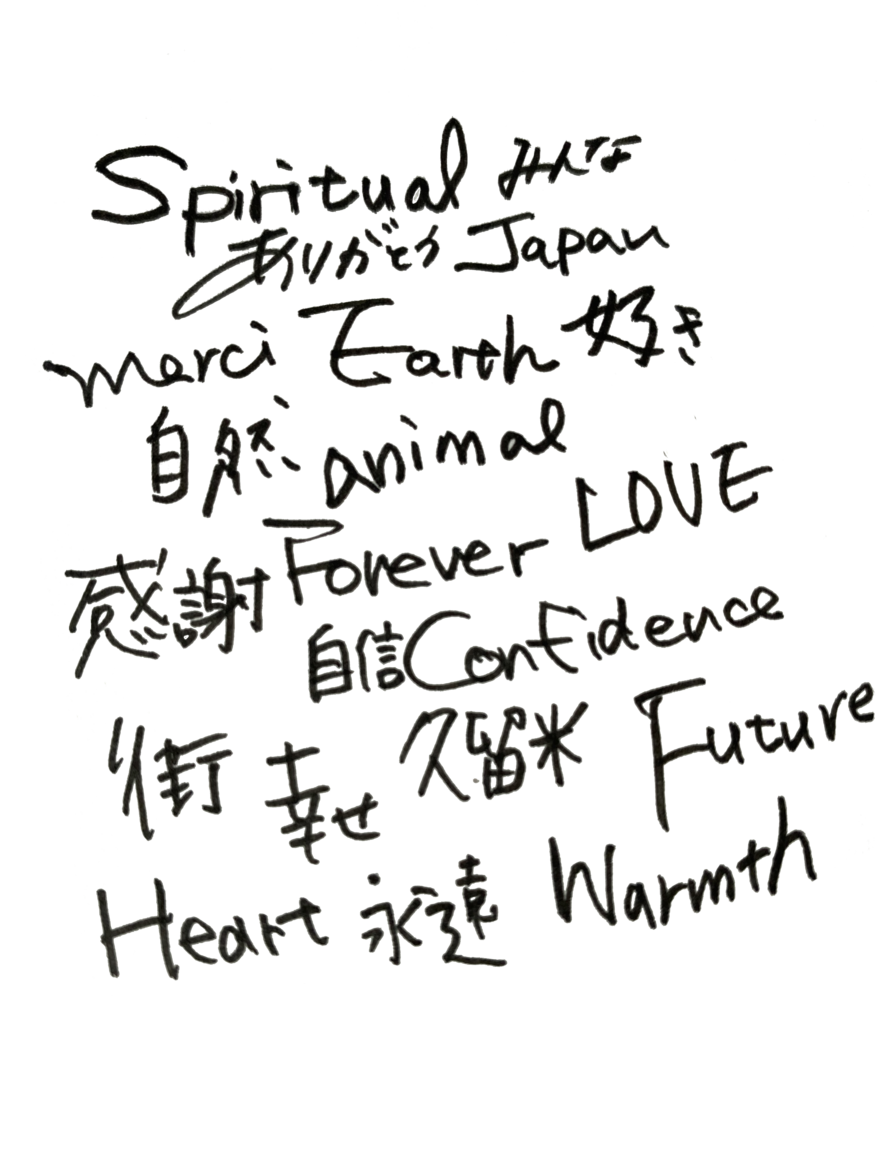 Spiritual みんな
ありがとう Japan
merci Earth 好き
自然 animal
感謝 Forever LOVE
自信 Confidence
街 幸せ 久留米 Future
Heart 永遠 Warmth